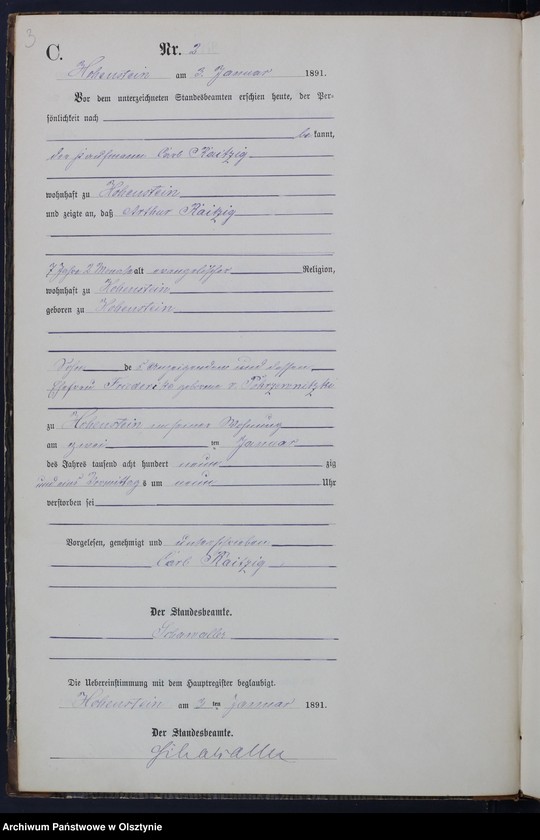 3
C.
Nr. 2
Hohenstein am 3. Januar 1891.
Vor dem unterzeichneten Standesbeamten erschien heute, der Per-
sönlichkeit nach
be kannt,
der Kaufmann Carl Raitzig
wohnhaft zu Hohenstein
und zeigte an, daß Arthur Raitzig
7 Jahre 2 Monate alt evangelischer Religion,
wohnhaft zu Hohenstein
geboren zu Hohenstein
Sohn de s Anzeigenden und dessen
Ehefrau Friederike geborene v.
zu Hohenstein in seiner Wohnung
am zwei ten Januar
des Jahres tausend acht hundert neun zig
und eins Vormittag s um neun Uhr
verstorben sei
Vorgelesen, genehmigt und unterschrieben
Carl Raitzig
Der Standesbeamte.
Schawaller
Die Uebereinstimmung mit dem Hauptregister beglaubigt.
Hohenstein am 3 ten Januar 1891.
Der Standesbeamte.
Schawaller
Archiwum Państwowe w Olsztynie